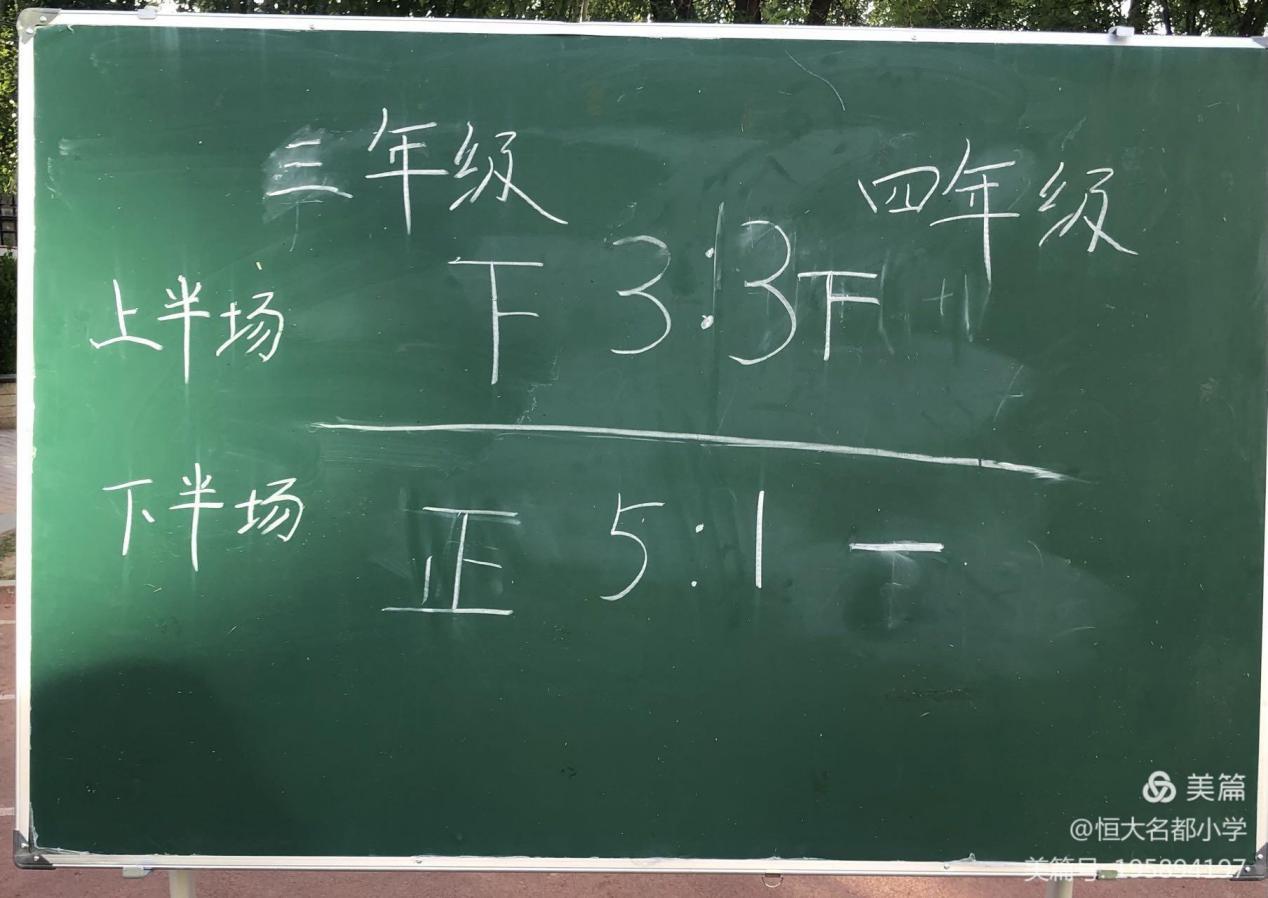 三年级 四年级
上半场 下 3:3 下
下半场 正 5:1 一
美篇
@恒大名都小学
美篇号 195894197